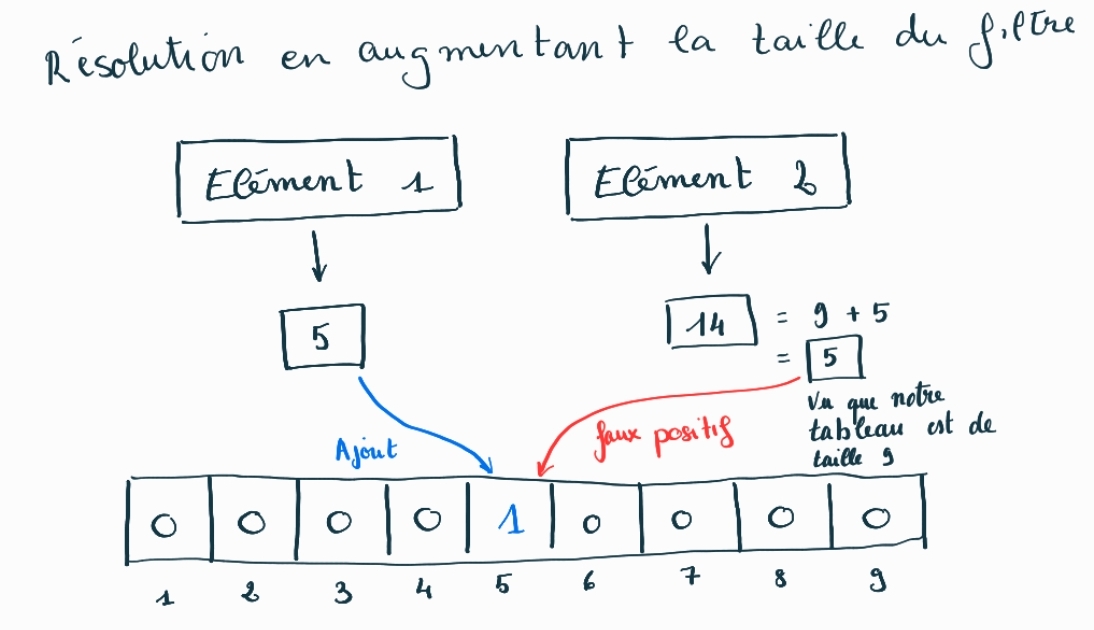 Résolution en augmentant la taille du filtre
Elément 1
Elément 2
5
14 = 9 + 5
= 5
Vu que notre
tableau est de
taille 9
Ajout
faux positif
0 0 0 0 1 0 0 0 0
1 2 3 4 5 6 7 8 9